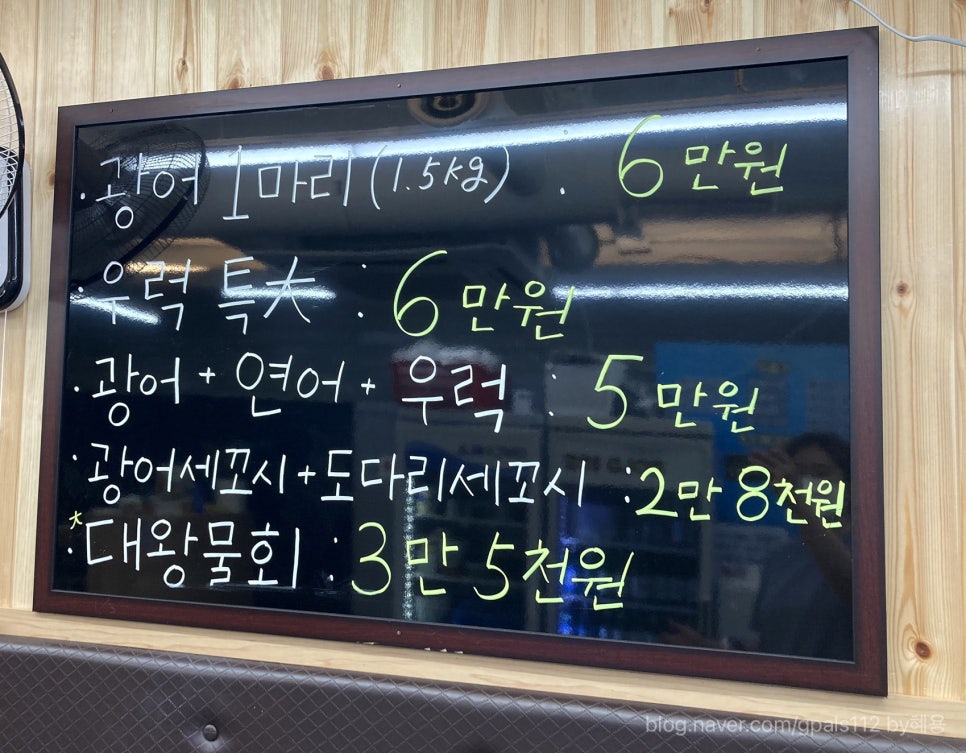 · 광어 1마리 (1.5kg) . 6만원
· 우럭 특大 : 6만원
· 광어 + 연어 + 우럭 : 5만원
· 광어세꼬시+도다리세꼬시 : 2만 8천원
* · 대왕물회 : 3만 5천원
blog.naver.com/gpals112 by혜용